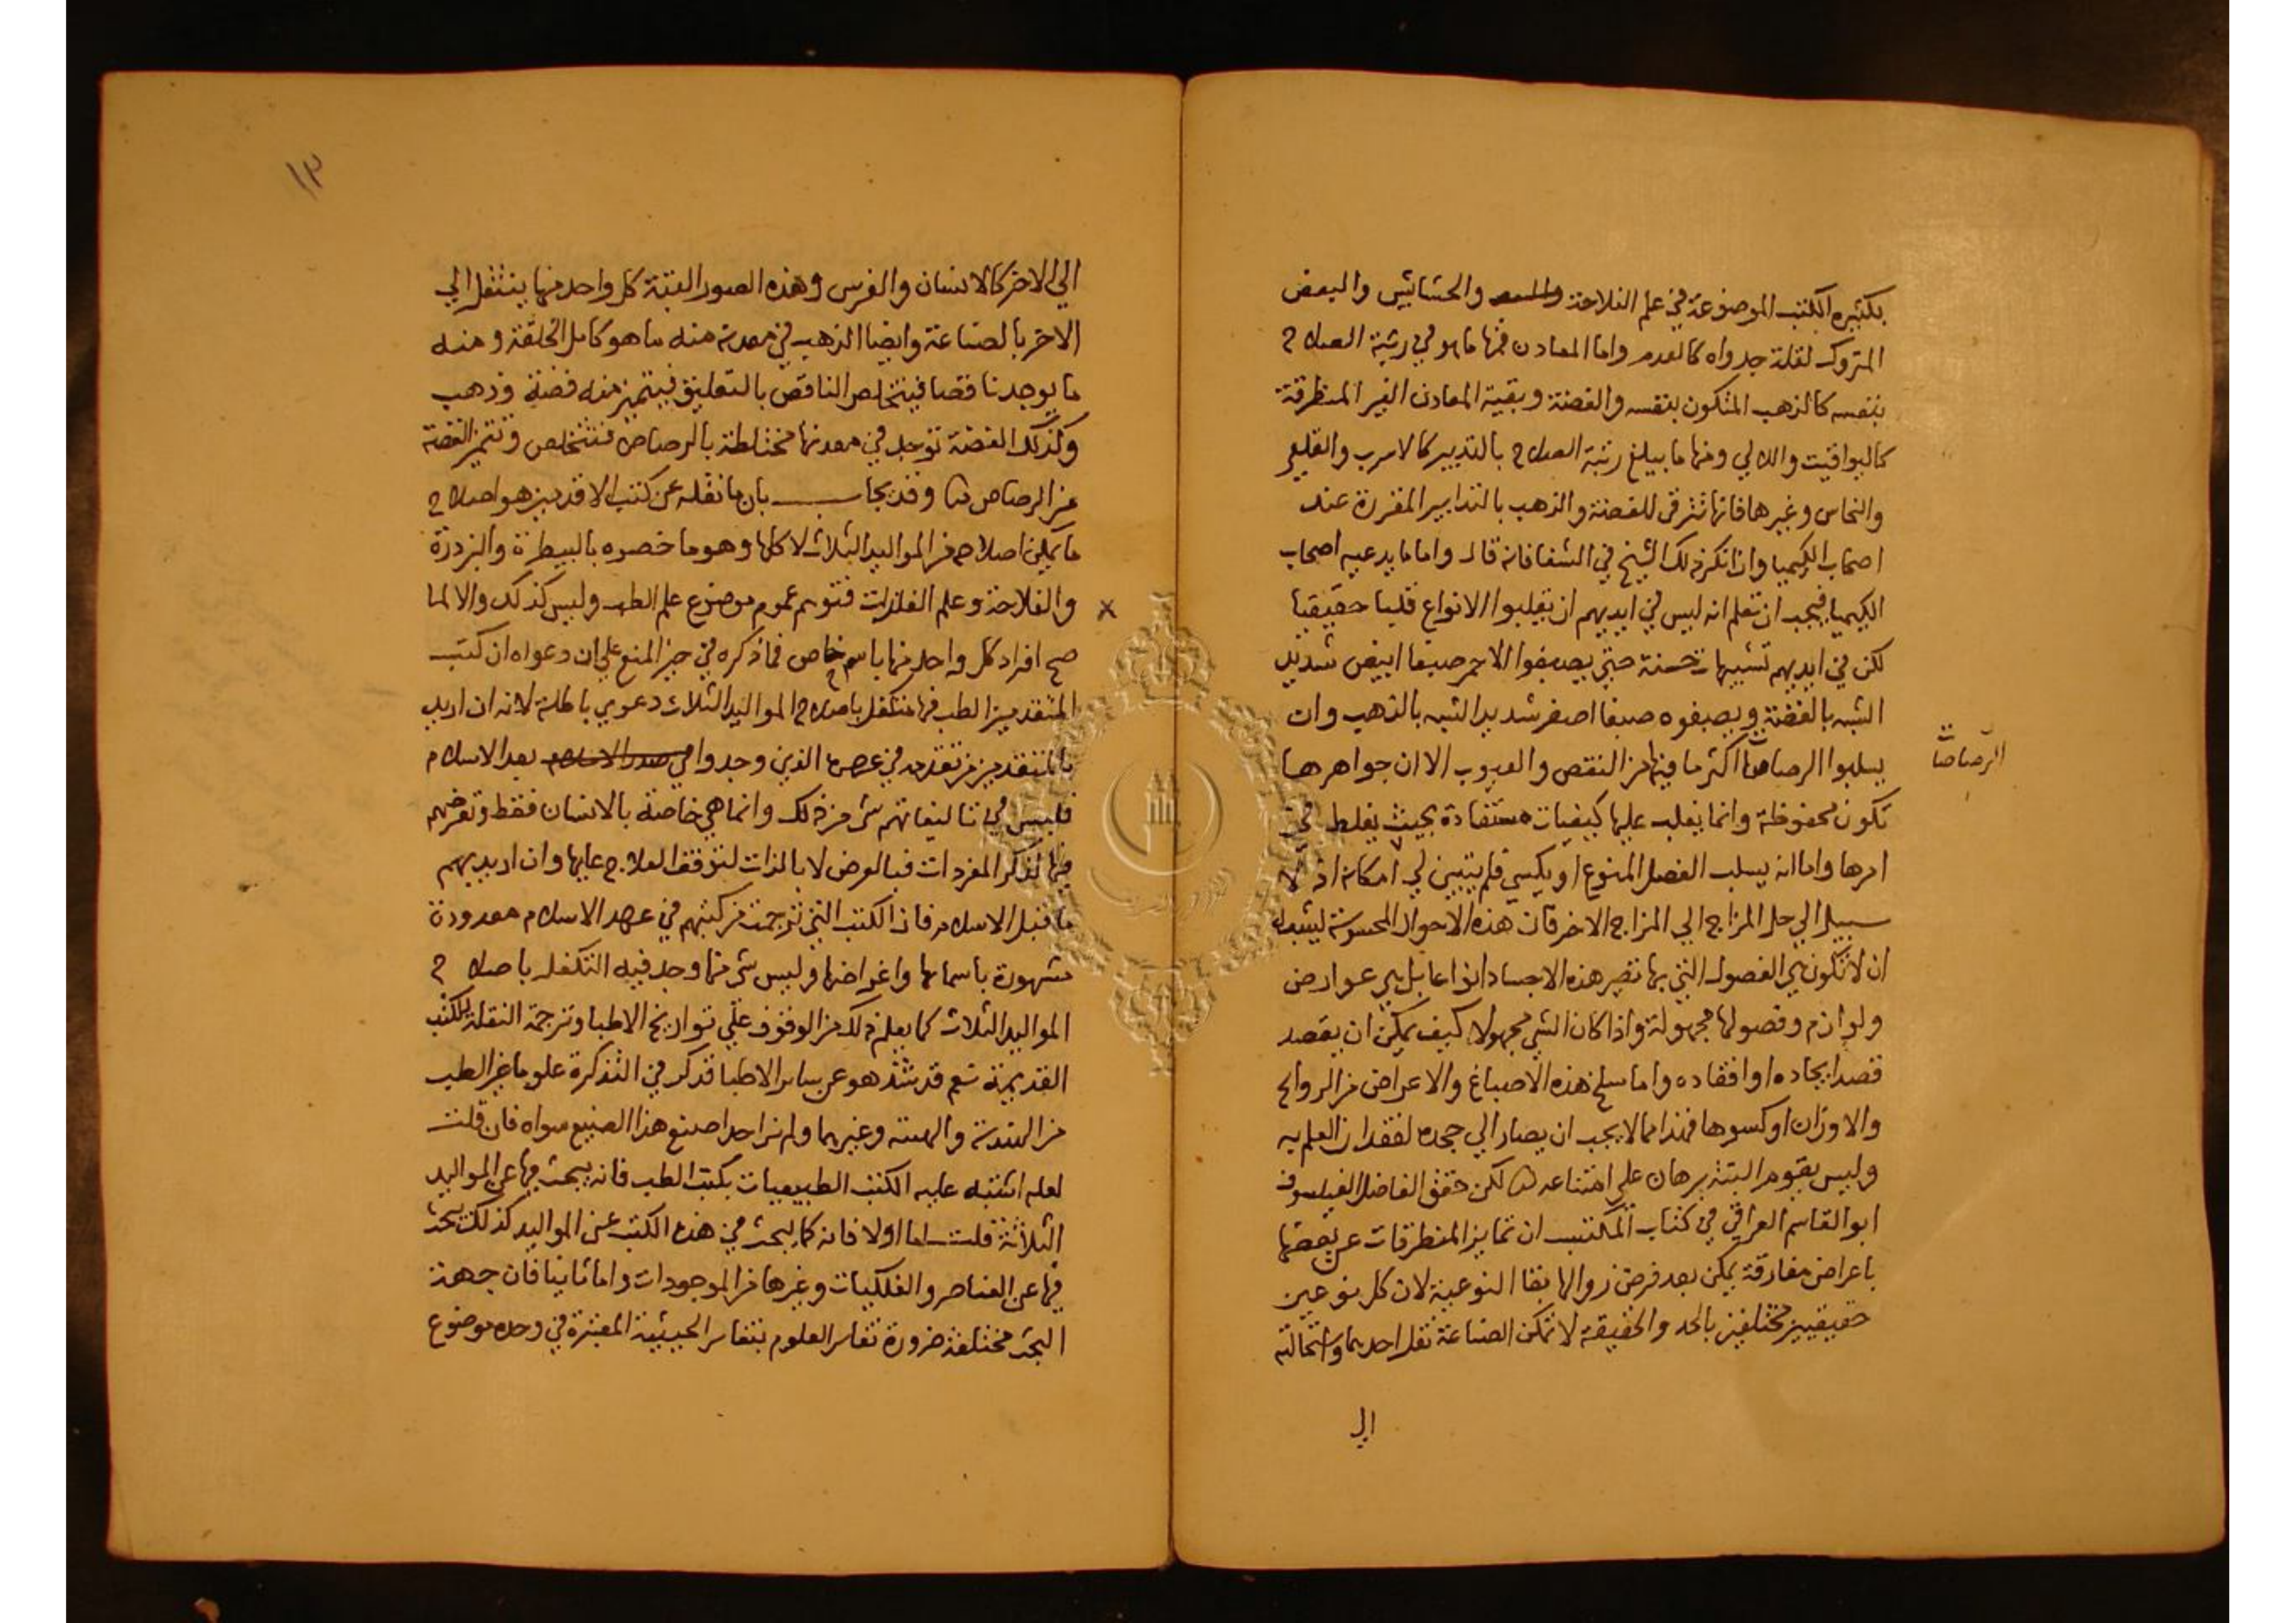 بكثيره الكتب الموضوعة في علم الفلاحة والحشائيش والبعض
المتروك لقلة جدواه كالعدم واما المعادن فمنها ما هو في رتبة الصلاح
بنفسه كالذهب المتكون بنفسه والفضة وبقية المعادن الغير المنطرقة
كاليواقيت واللالي ومنها ما يبلغ رتبة الصلاح بالتدبير كالاسرب والقلعي
والنحاس وغيرها فانها تترقى للفضة والذهب بالتدابير المقررة عند
اصحاب الكيميا وان انكر ذلك الشيخ في الشفا فانه قال واما ما يدعيه اصحاب
الكيميا فيجب ان تعلم انه ليس في ايديهم ان يقلبوا الانواع قلبا حقيقيا
لكن في ايديهم تشبيهات حسنة حتى يصبغوا الاحمر صبغا ابيض شديد
الشبه بالفضة ويصبغوه صبغا اصفر شديد الشبه بالذهب وان
يسلبوا الرصاصات اكثر ما فيها من النقص والعيوب الا ان جواهرها
الرصاصات
تكون محفوظة وانما يغلب عليها كيفيات مستفادة بحيث يغلط في
امرها واما انه يسلب الفصل المنوع او يكسي فلم يتبين لي امكانه اذ لا
سبيل الي حل المزاج الي المزاج الاخر فان هذه الاحوال المحسوسة ليشبه
ان لا تكون هي الفصول التي بها تصير هذه الاجساد انواعا بل هي عوارض
ولوازم وفصولها مجهولة واذا كان الشي مجهولا كيف يمكن ان يقصد
قصد ايجاده او افقاده واما سلخ هذه الاصباغ والاعراض من الروايح
والاوزان او كسوها فهذا مما لا يجب ان يصار الي جحده لفقدان العلم به
وليس يقوم البتة برهان على امتناعه لكن حقق الفاضل الفيلسوف
ابو القاسم العراقي في كتاب المكتسب ان تمايز المنطرقات عن بعضها
باعراض مفارقة يمكن بعد فرض زوالها بقا النوعية لان كل نوعين
حقيقيين مختلفين بالحد والحقيقة لا تمكن الصناعة نقل احدهما واستحالته
الي
١٣
الي الاخر كالانسان والفرس وهذه الصور الستة كل واحد منها ينتقل الي
الاخر بالصناعة وايضا الذهب في معدنه منه ما هو كامل الخلقة ومنه
ما يوجد ناقصا فيتخلص الناقص بالتعليق فيتميز منه فضة وذهب
وكذلك الفضة توجد في معدنها مختلطة بالرصاص فتتخلص وتتميز الفضة
من الرصاص وقد يجاب بان ما نقله عن كتب الاقدمين هو اصلاح
ما يمكن اصلاحه من المواليد الثلاث لا كلها وهو ما خصوه بالبيطرة والبزدرة
والفلاحة وعلم الفلزات فتوهم عموم موضوع علم الطب وليس كذلك والا لما
صح افراد كل واحد منها باسم خاص فما ذكره في حيز المنع على ان دعواه ان كتب
المتقدمين الطب فيها متكفل باصلاح المواليد الثلاث دعوي باطلة لانه ان اريد
بالمتقدمين من تقدمه في عصرنا الذين وجدوا في صدر الاسلام بعد الاسلام
فليس في تاليفاتهم شي من ذلك وانما هي خاصة بالانسان فقط وتعرضهم
فيها لذكر المفردات فبالعرض لا بالذات لتوقف العلاج عليها وان اريد بهم
ما قبل الاسلام فان الكتب التي ترجمت من كتبهم في عهد الاسلام معدودة
مشهورة باسمائها واغراضها وليس شي منها وجد فيه التكفل باصلاح
المواليد الثلاث كما يعلم ذلك من الوقوف على تواريخ الاطبا وترجمة النقلة للكتب
القديمة نعم قد شذ هو عن سائر الاطبا فذكر في التذكرة علوما غير الطب
من الهندسة والهيئة وغيرهما ولم نر احدا صنع هذا الصنيع سواه فان قلت
لعله اشتبه عليه الكتب الطبيعيات بكتب الطب فانه يبحث فيها عن المواليد
الثلاثة قلت اما اولا فانه كما يبحث في هذه الكتب عن المواليد كذلك يبحث
فيها عن العناصر والفلكيات وغيرها من الموجودات واما ثانيا فان جهة
البحث مختلفة ضرورة تغاير العلوم بتغاير الحيثية المعتبرة في وحدة موضوع